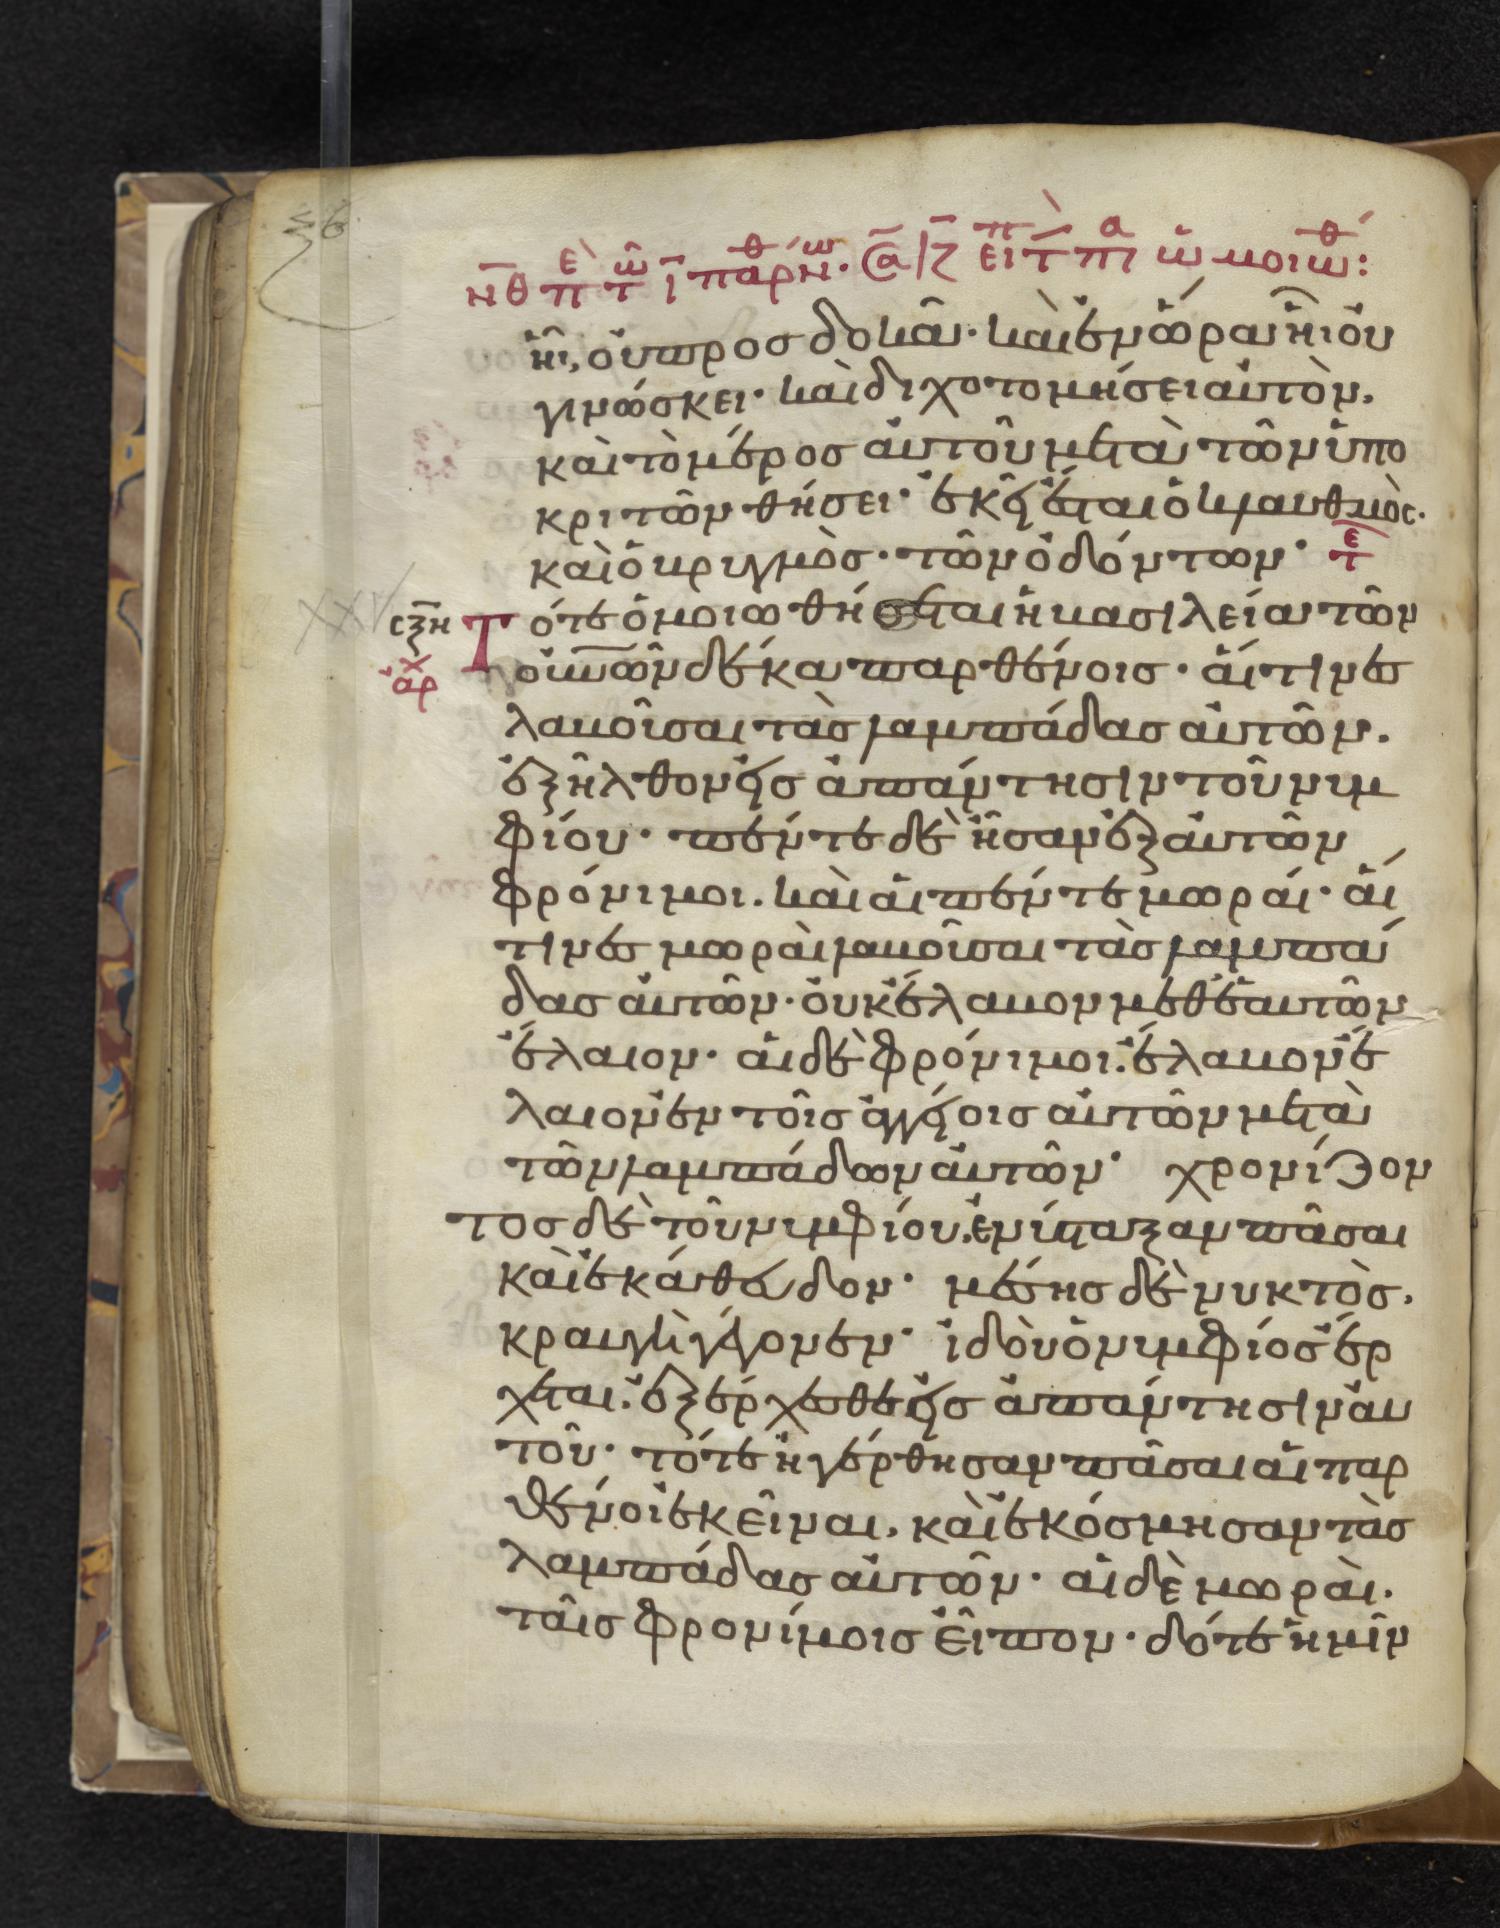 ἧι, οὐ προσδοκᾶ· καὶ ἐν ὥρα ἧι οὐ
γινώσκει· καὶ διχοτομήσει αὐτὸν.
καὶ τὸ μέρος αὐτοῦ μετὰ τῶν ὑπο
κριτῶν θήσει· ἐκεῖ ἔσται ὁ κλαυθμὸς·
καὶ ὁ βρυγμὸς· τῶν ὀδόντων·
σξη Τότε ὁμοιωθήσεται ἡ βασιλεία τῶν
ἀρχ οὐνῶν δέκα παρθένοις· αἵτινες
λαβοῦσαι τὰς λαμπάδας αὐτῶν.
ἐξῆλθον εἰς ἀπάντησιν τοῦ νυμ
φίου· πέντε δὲ ἦσαν ἐξ αὐτῶν
φρόνιμοι. καὶ αἱ πέντε μωραί· αἵ
τινες μωραὶ λαβοῦσαι τὰς λαμπά
δας αὐτῶν· οὐκ ἔλαβον μεθ' ἑαυτῶν
ἔλαιον· αἱ δὲ φρόνιμοι. ἔλαβον ἔ
λαιον ἐν τοῖς ἀγγείοις αὐτῶν μετὰ
τῶν λαμπάδων αὐτῶν· χρονίζον
τος δὲ τοῦ νυμφίου. ἐνύσταξαν πᾶσαι
καὶ ἐκάθευδον· μέσης δὲ νυκτὸς.
κραυγὴ γέγονεν· ἰδοὺ ὁ νυμφίος ἔρ
χεται. ἐξέρχεσθε εἰς ἀπάντησιν αὐ
τοῦ· τότε ἠγέρθησαν πᾶσαι αἱ παρ
θένοι ἐκεῖναι. καὶ ἐκόσμησαν τὰς
λαμπάδας αὐτῶν· αἱ δὲ μωραὶ.
ταῖς φρονίμοις εἶπον· δότε ἡμῖν